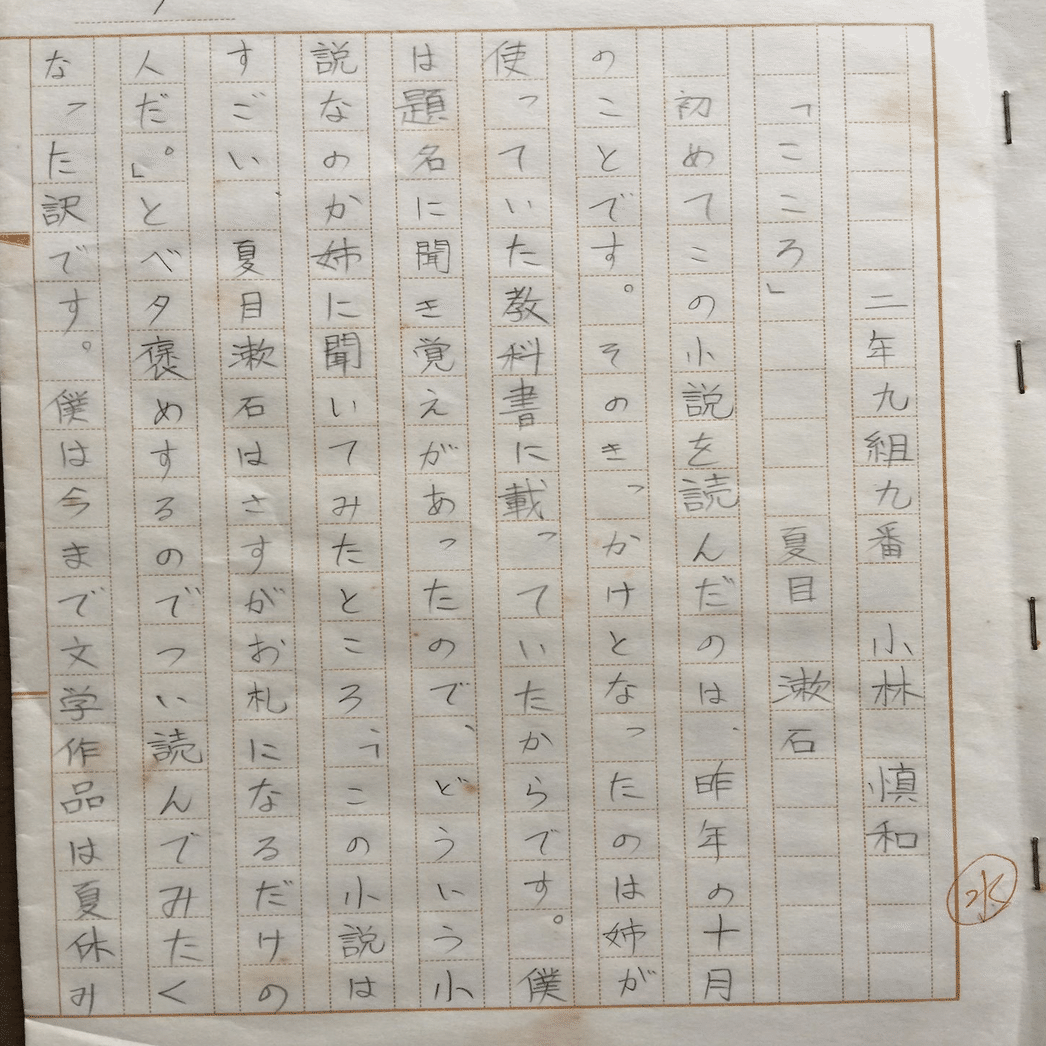 二年九組九番　小林　慎和
「こころ」　夏目　漱石
初めてこの小説を読んだのは、昨年の十月
のことです。そのきっかけとなったのは姉が
使っていた教科書に載っていたからです。僕
は題名に聞き覚えがあったので、どういう小
説なのか姉に聞いてみたところ、「この小説は
すごい、夏目漱石はさすがお札になるだけの
人だ。」とベタ褒めするのでつい読んでみたく
なった訳です。僕は今まで文学作品は夏休み
水